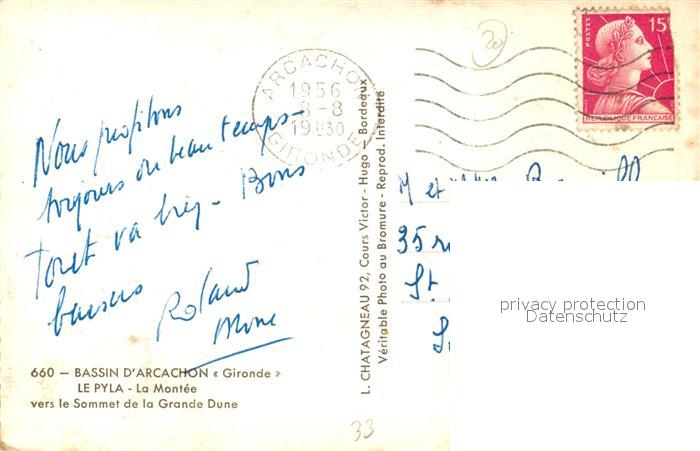 Nous profitons
toujours du beau temps -
Tout va bien - Bons
baisers
Roland
660 — BASSIN D'ARCACHON « Gironde »
LE PYLA - La Montée
vers le Sommet de la Grande Dune
33
L. CHATAGNEAU 92, Cours Victor - Hugo - Bordeaux
Véritable Photo au Bromure - Reprod. Interdite
ARCACHON
1956
8-8
1930
GIRONDE
POSTES
15F
REPUBLIQUE FRANCAISE
M et
35
St.
privacy protection
Datenschutz